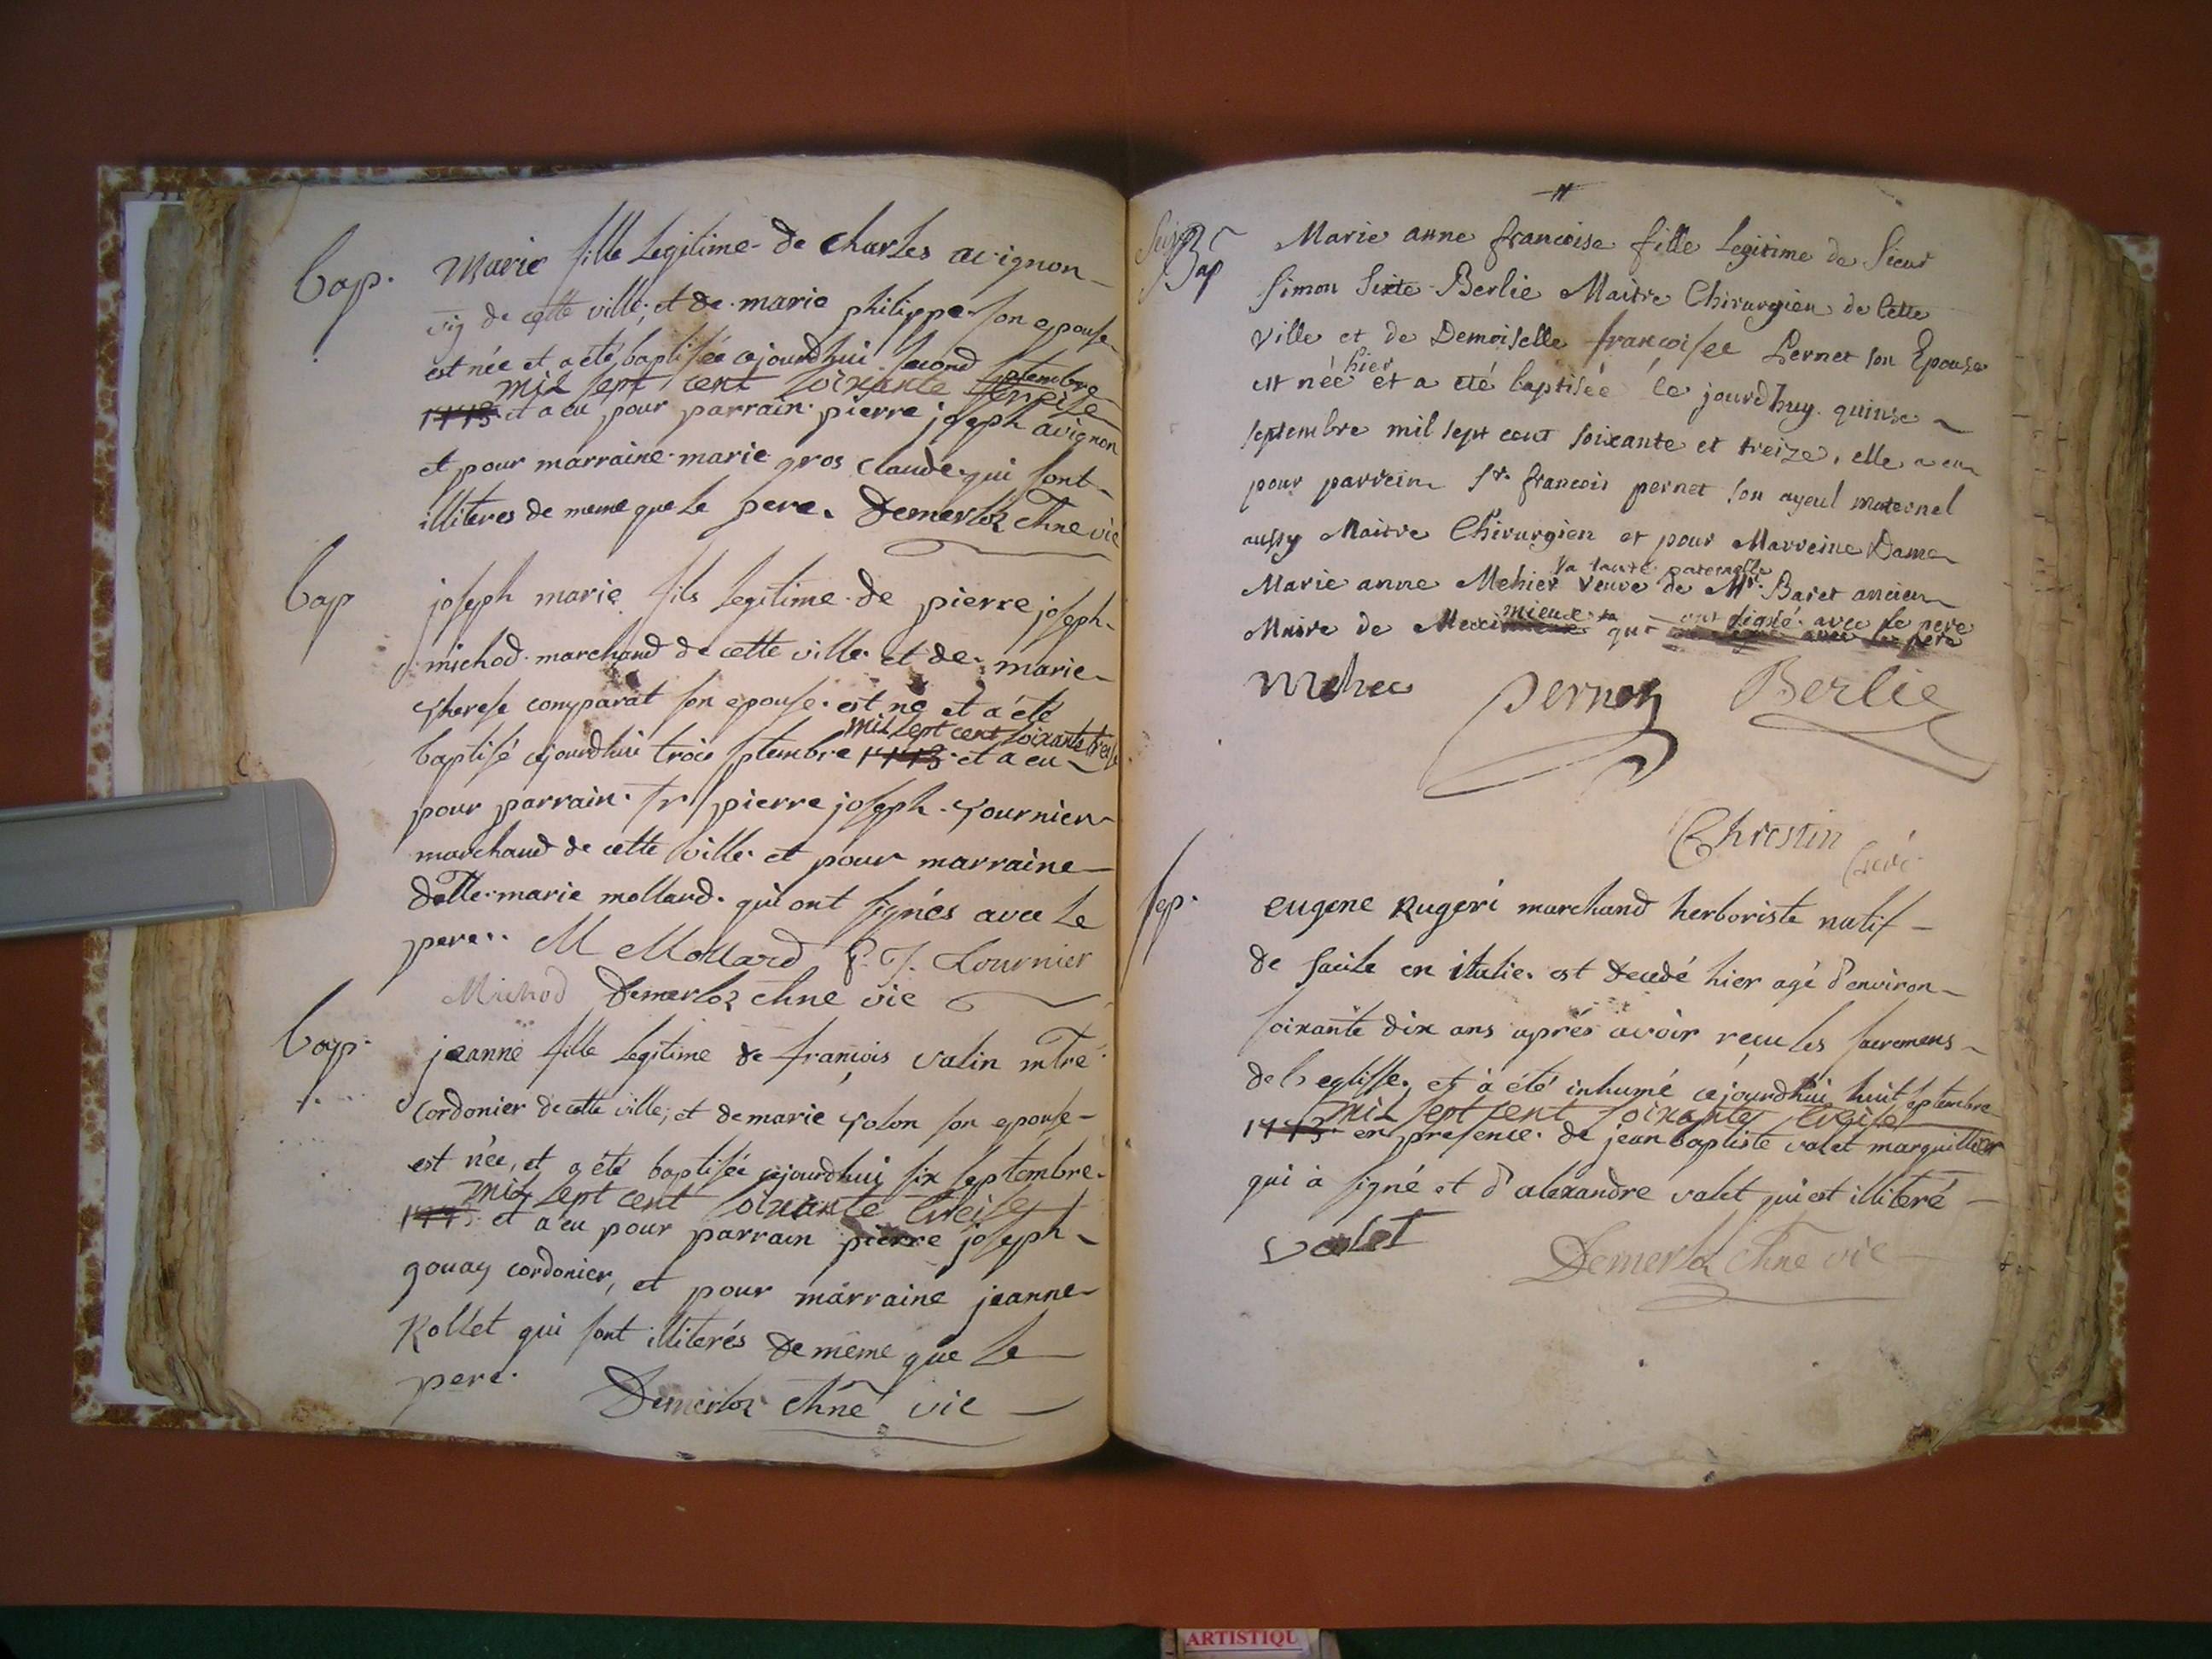 bap. Marie fille legitime de charles avignon
vig de cette ville, et de marie philippe son epouse
est née et a été baptisée cejourdhui second septembre
mil sept cent soixante treize
1773 et a eu pour parrain pierre joseph avignon
et pour marraine marie gros claude qui sont
illiteres de meme que le pere. Demerloz chne vic
bap joseph marie fils legitime de pierre joseph
michod marchand de cette ville et de marie
therese comparat son epouse est né et a été
mil sept cent soixante treise
baptisé cejourdhui trois septembre 1773 et a eu
pour parrain sr pierre joseph fournier
marchand de cette ville et pour marraine
delle marie mollard qui ont signés avec le
pere. M Mollard P. J. Fournier
Michod Demerloz chne vic
bap. jeanne fille legitime de françois valin mtre
cordonier de cette ville, et de marie folon son epouse
est née, et a été baptisée cejourdhui six septembre
mil sept cent soixante treise
1773 et a eu pour parrain pierre joseph
gouay cordonier, et pour marraine jeanne
Rollet qui sont illiterés de même que le
pere.
Demerloz chne vic
Bap Marie anne francoise fille legitime de Sieur
Simon Sixte Berlie Maitre Chirurgien de Cette
Ville et de Demoiselle françoisee Pernet son Epouse
hier
est née et a eté baptisée Ce jourdhuy quinse
septembre mil sept cent soixante et treize, elle a eu
pour parrein sr. francois pernet son ayeul maternel
aussy Maitre Chirurgien et pour Marreine Dame
sa tante paternelle
Marie anne Mehier Veuve de Mr. Baret ancien
mieux ont signé avec le pere
Maire de Mexi qui avec le pere
Mehier Pernet Berlie
Chrestin
Curé
sep. eugene Rugeri marchand herboriste natif
de sacile en italie est decedé hier agé d'environ
soixante dix ans aprés avoir reçu les sacremens
de l'eglisse, et à été inhumé cejourdhui huit septembre
mil sept cent soixante treise
1773 en presence de jean baptiste valet marguillier
qui à signé et d'alexandre valet qui est illiteré
valet
Demerloz chne vic
ARTISTIQU